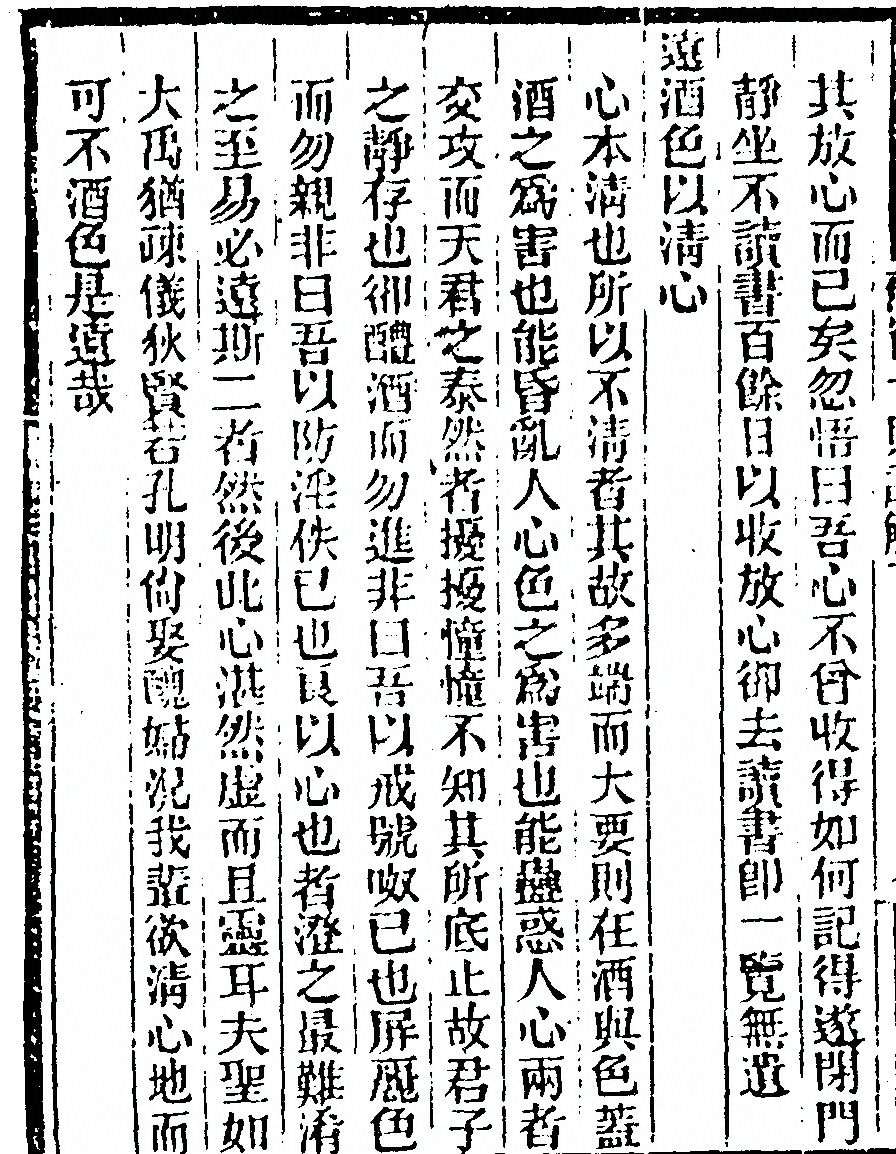 其放心而已矣忽悟曰吾心不曾收得如何記得遂閉門
靜坐不讀書百餘日以收放心卻去讀書即一覽無遺
遠酒色以淸心
心本淸也所以不淸者其故多端而大要則在酒與色蓋
酒之爲害也能昏亂人心色之爲害也能蠱惑人心兩者
交攻而天君之泰然者擾擾憧憧不知其所底止故君子
之靜存也卻醴酒而勿進非曰吾以戒號呶已也屏厖色
而勿親非曰吾以防淫佚已也良以心也者澄之最難淆
之至易必遠斯二者然後此心湛然虛而且靈耳夫聖如
大禹猶疎儀狄賢若孔明尙娶醜婦況我輩欲淸心地而
可不酒色是遠哉